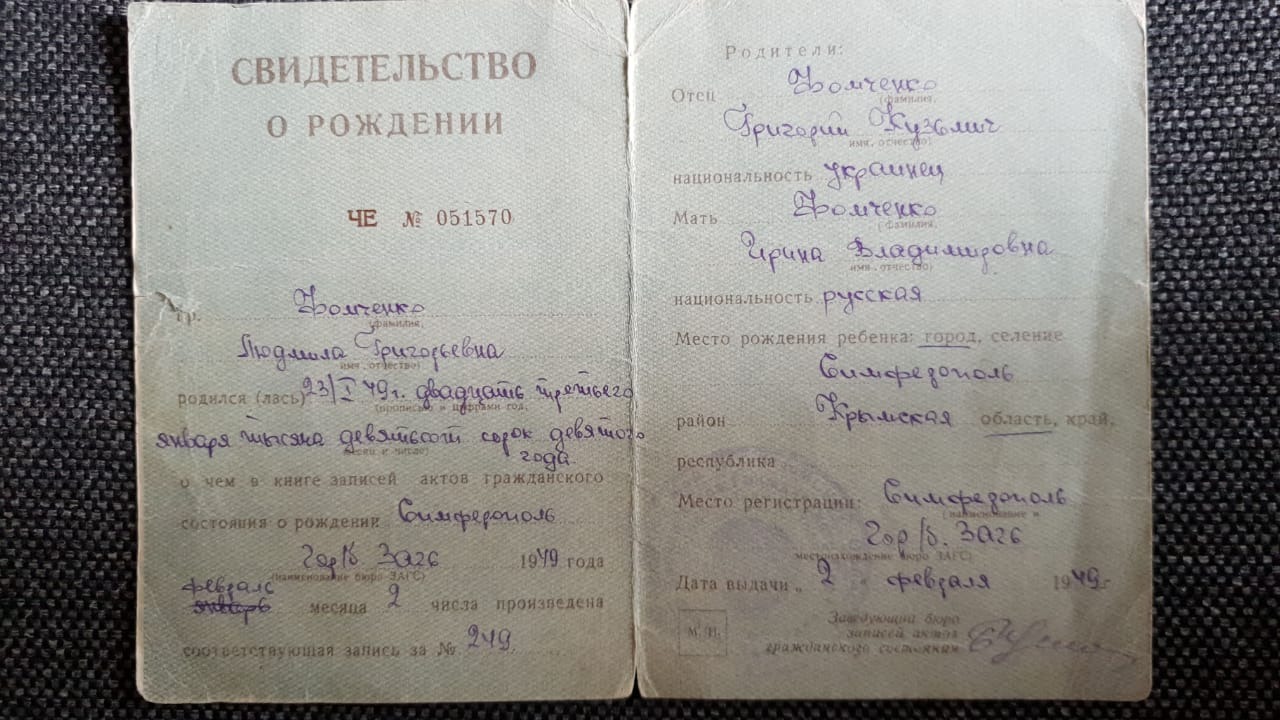 СВИДЕТЕЛЬСТВО
О РОЖДЕНИИ
ЧЕ № 051570
гр. Фомченко
(фамилия,
Людмила Григорьевна
имя, отчество)
родился (лась) 23/I 49г. двадцать третьего
(прописью и цифрами год,
января тысяча девятьсот сорок девятого
месяц и число)
года
о чем в книге записей актов гражданского
состояния о рождении Симферополь
Гор/б. Загс 1949 года
(наименование бюро ЗАГС)
февраль
январь месяца 2 числа произведена
соответствующая запись за № 249.
Родители:
Отец Фомченко
(фамилия,
Григорий Кузьмич
имя, отчество)
национальность украинец
Мать Фомченко
(фамилия,
Ирина Владимировна
имя, отчество)
национальность русская
Место рождения ребенка: город, селение
Симферополь
район Крымская область, край,
республика
Место регистрации: Симферополь
(наименование и
Гор/б. Загс
местонахождение бюро ЗАГС)
Дата выдачи „ 2 февраля 1949 г.
М. П.
Заведующий бюро
записей актов
гражданского состояния